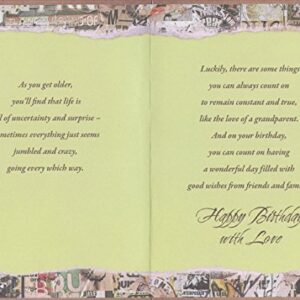 As you get older,
you'll find that life is
l of uncertainty and surprise –
metimes everything just seems
jumbled and crazy,
going every which way.
Luckily, there are some things
you can always count on
to remain constant and true,
like the love of a grandparent.
And on your birthday,
you can count on having
a wonderful day filled with
good wishes from friends and fam
Happy Birthday
with Love